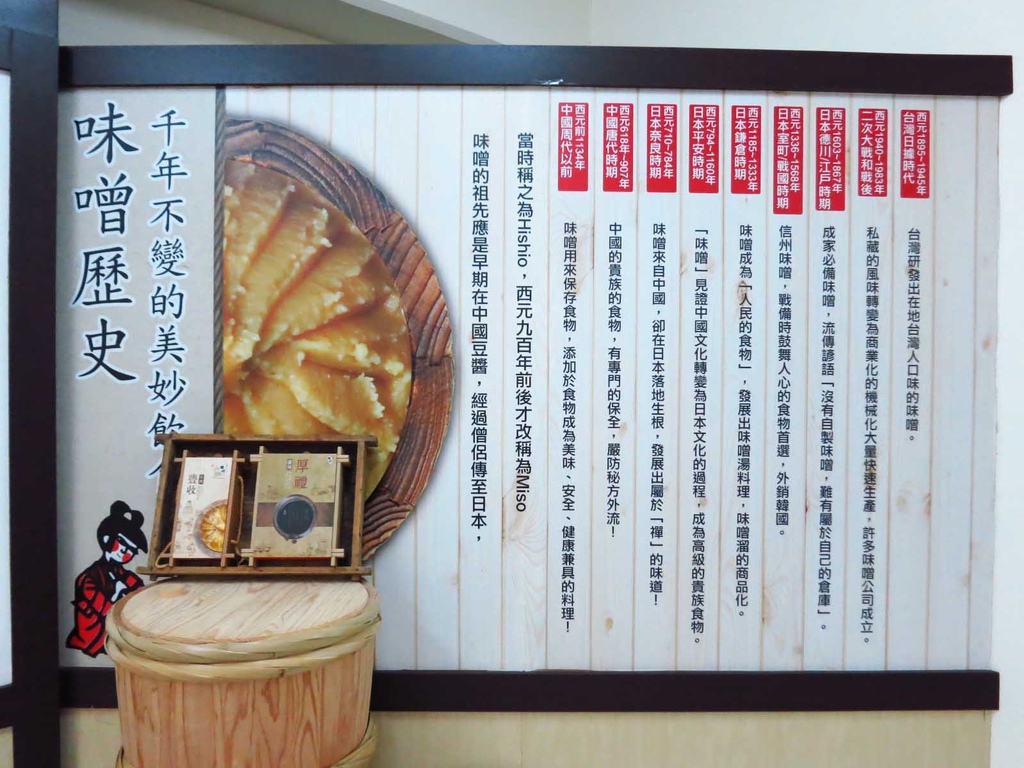 味噌歷史
千年不變的美妙飲
味噌的祖先應是早期在中國豆醬，經過僧侶傳至日本，
當時稱之為Hishio，西元九百年前後才改稱為Miso
西元前1134年
中國周代以前
味噌用來保存食物，添加於食物成為美味、安全、健康兼具的料理！
西元618年~907年
中國唐代時期
中國的貴族的食物，有專門的保全，嚴防秘方外流！
西元710~784年
日本奈良時期
味噌來自中國，卻在日本落地生根，發展出屬於「禪」的味道！
西元794~1160年
日本平安時期
「味噌」見證中國文化轉變為日本文化的過程，成為高級的貴族食物。
西元1185~1333年
日本鎌倉時期
味噌成為「人民的食物」，發展出味噌湯料理，味噌溜的商品化。
西元1336~1568年
日本室町/戰國時期
信州味噌，戰備時鼓舞人心的食物首選，外銷韓國。
西元1603~1867年
日本德川/江戶時期
成家必備味噌，流傳諺語「沒有自製味噌，難有屬於自己的倉庫」。
西元1940~1983年
二次大戰和戰後
私藏的風味轉變為商業化的機械化大量快速生產，許多味噌公司成立。
西元1895~1945年
台灣日據時代
台灣研發出在地台灣人口味的味噌。
豐收
厚禮